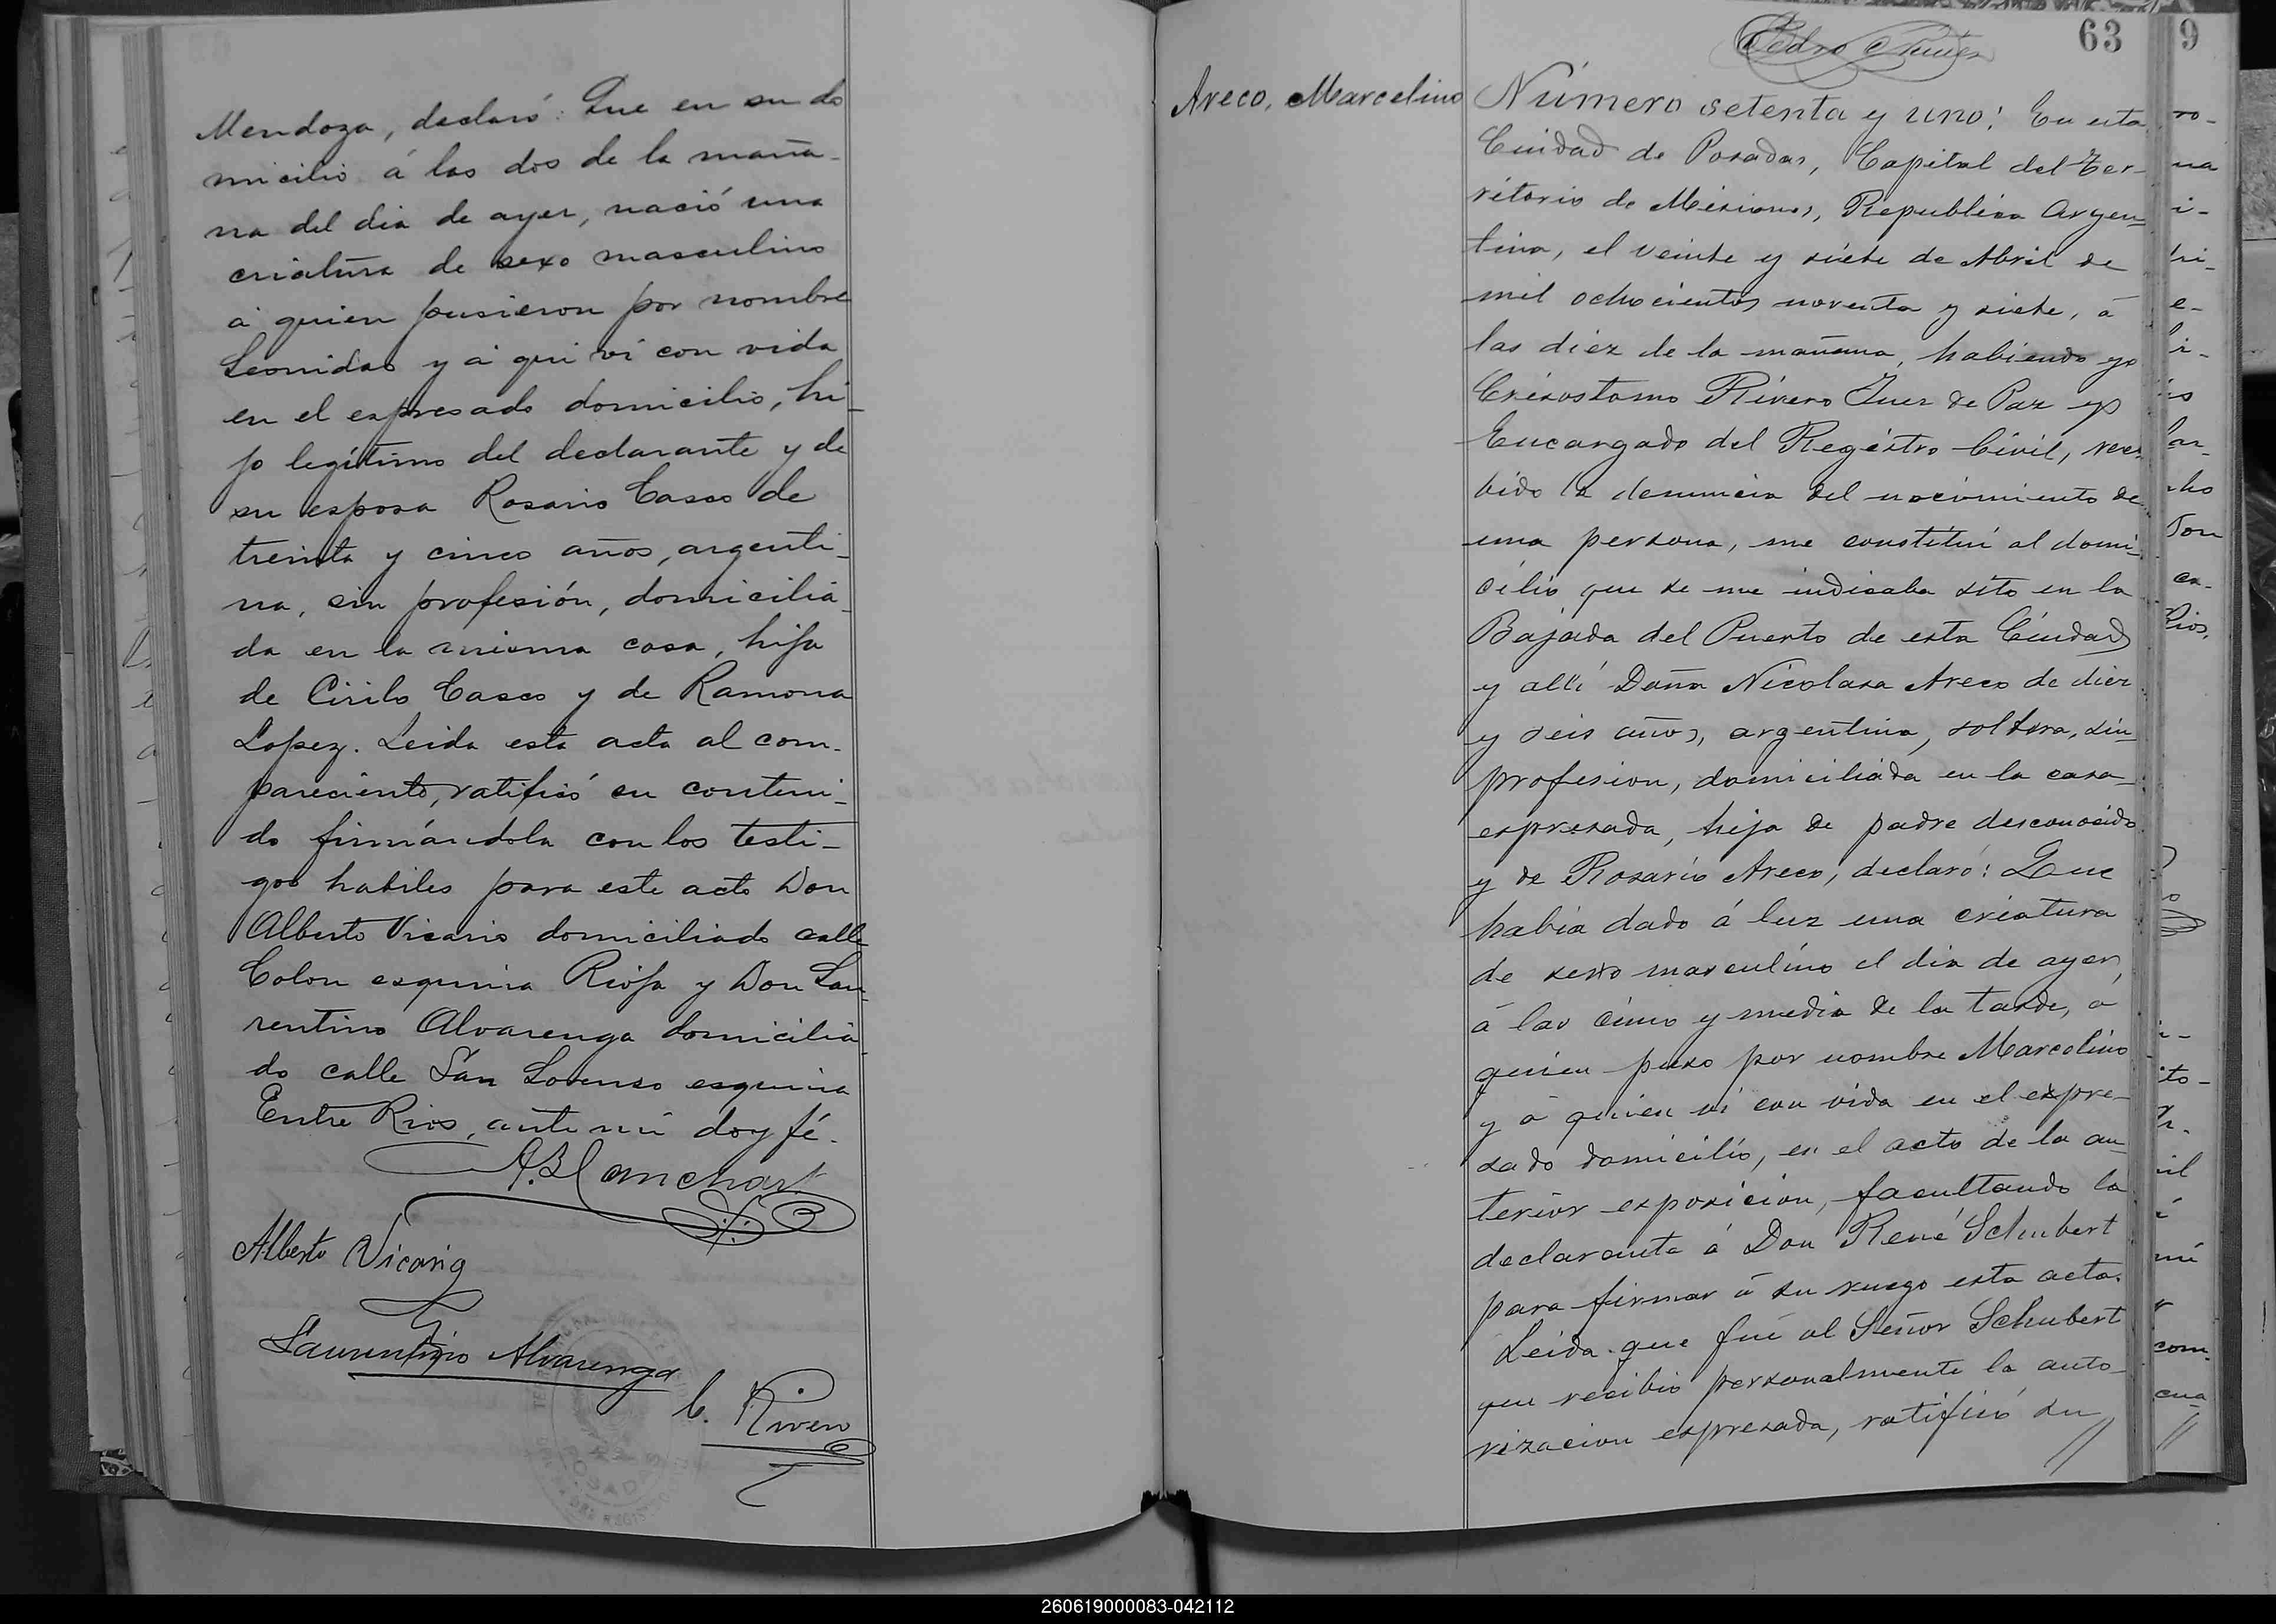 Mendoza, declaró: Que en su do
micilio á las dos de la maña-
na del dia de ayer, nació una
criatura de sexo masculino
á quien pusieron por nombre
Leonidas y á qui ví con vida
en el expresado domicilio, hi-
jo legítimo del declarante y de
su esposa Rosario Casco de
treinta y cinco años, argenti-
na, sin profesión, domicilia-
da en la misma casa, hija
de Cirilo Casco y de Ramona
Lopez. Leida esta acta al com-
pareciente, ratificó su conteni-
do firmándola con los testi-
gos habiles para este acto Don
Alberto Vicario domiciliado calle
Colon esquina Rioja y Don Lau-
rentino Alvarenga domicilia-
do calle San Lorenzo esquina
Entre Rios, ante mí doy fé.
Alberto Vicario
Laurentino Alvarenga
C. Rivero
63
Areco, Marcelino
Número setenta y uno: En esta
Ciudad de Posadas, Capital del Ter-
ritorio de Misiones, Republica Argen-
tina, el veinte y siete de Abril de
mil ochocientos noventa y siete, á
las diez de la mañana, habiendo yo
Crisostomo Rivero Juez de Paz y
Encargado del Registro Civil, reci-
bido la denuncia del nacimiento de
una persona, me constituí al domi-
cilio que se me indicaba sito en la
Bajada del Puerto de esta Ciudad
y allí Doña Nicolasa Areco de diez
y seis años, argentina, soltera, sin
profesion, domiciliada en la casa
expresada, hija de padre desconocido
y de Rosario Areco, declaró: Que
habia dado á luz una criatura
de sexo masculino el dia de ayer,
á las cinco y media de la tarde, á
quien puso por nombre Marcelino
y á quien ví con vida en el expre-
sado domicilio, en el acto de la an-
terior exposicion, facultando la
declarante á Don René Schubert
para firmar á su ruego esta acta.
Leida que fué al Señor Schubert
que recibió personalmente la auto-
rizacion expresada, ratificó su
9
260619000083-042112